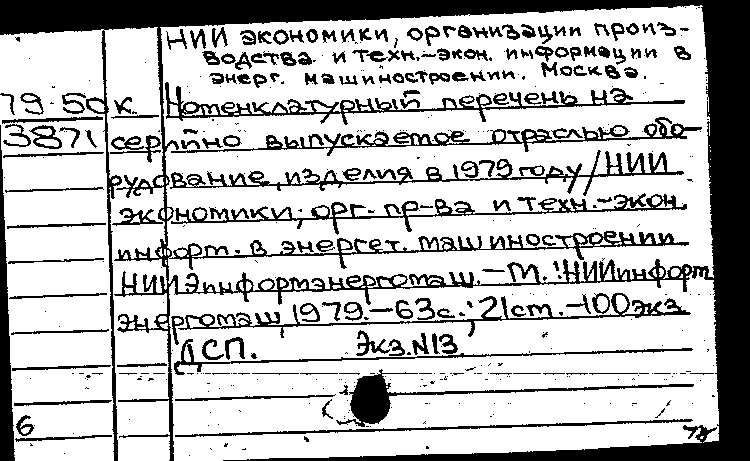 НИИ экономики, организации произ-
водства и техн.-экон. информации в
энерг. машиностроении. Москва.
79-50 к Номенклатурный перечень на
3871 серийно выпускаемое отраслью обо-
рудование, изделия в 1979 году/НИИ
экономики, орг. пр-ва и техн.-экон.
информ. в энергет. машиностроении
НИИЭинформэнергомаш.-М.: НИИинформ
энергомаш, 1979.-63с.; 21см.-100экз
ДСП. Экз.N13
6